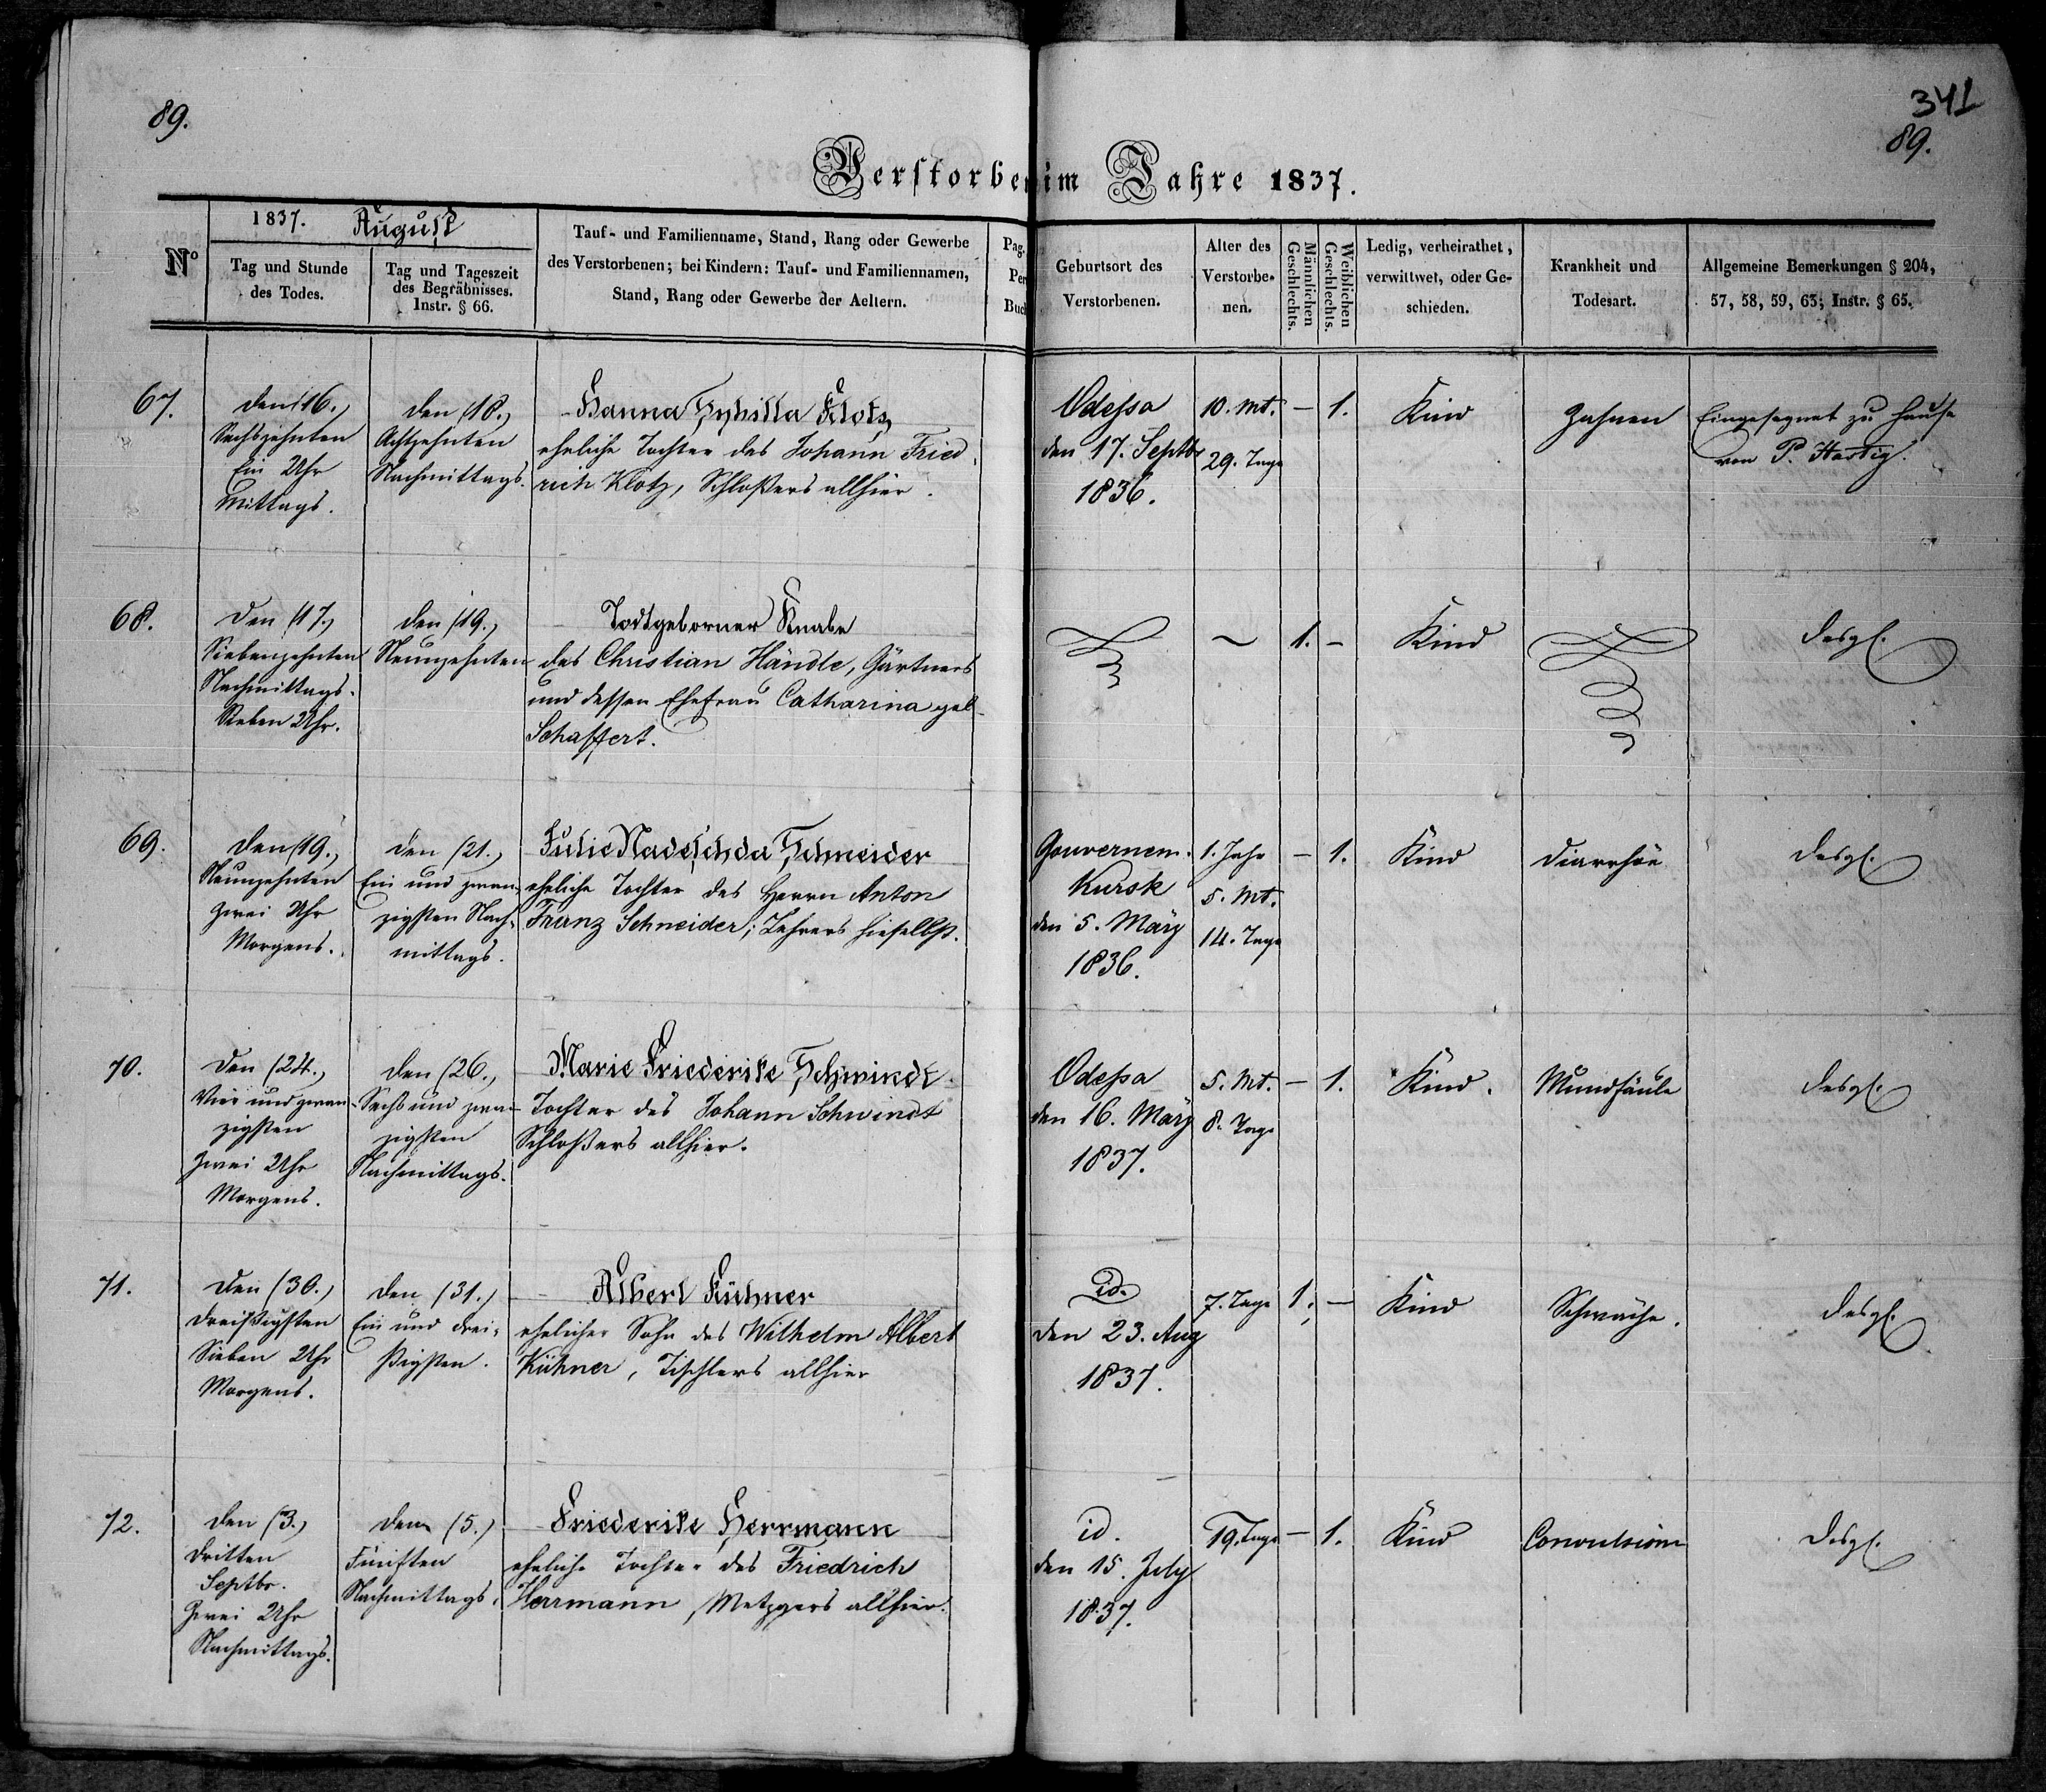 89.
341
89.
Verstorben im Jahre 1837.
No
1837. August
Tag und Stunde
des Todes.
Tag und Tageszeit
des Begräbnisses.
Instr. § 66.
Tauf- und Familienname, Stand, Rang oder Gewerbe
des Verstorbenen; bei Kindern: Tauf- und Familiennamen,
Stand, Rang oder Gewerbe der Aeltern.
Pag.
Per
Buch
Geburtsort des
Verstorbenen.
Alter des
Verstorbe-
nen.
Männlichen
Geschlechts.
Weiblichen
Geschlechts.
Ledig, verheirathet,
verwittwet, oder Ge-
schieden.
Krankheit und
Todesart.
Allgemeine Bemerkungen § 204,
57, 58, 59, 63; Instr. § 65.
67.
den (16.)
Sechszehnten
Ein Uhr
Mittags.
den (18.)
Achtzehnten
Nachmittags.
Hanna Sybilla Klotz
eheliche Tochter des Johann Fried
rich Klotz, Schloßers allhier.
Odessa
den 17. Septbr
1836.
10. Mt.
29. Tage
— 1.
Kind
Zahnen
Eingesegnet zu Hause
von P. Hastig.
68.
Den (17.)
Siebenzehnten
Nachmittags.
Sieben Uhr.
den (19.)
Neunzehnten
Todtgeborner Knabe
des Christian Händle, Gärtners
und dessen Ehefrau Catharina geb
Schaffert.
~
1. —
Kind
desgl.
69.
den (19.)
Neunzehnten
Zwei Uhr
Morgens.
den (21.)
Ein und zwan-
zigsten Nach-
mittags.
Julie Nadeschda Schneider
eheliche Tochter des Herrn Anton
Franz Schneider, Lehrers hieselbst.
Gouvernem.
Kursk
den 5. März
1836.
1. Jahr
5. Mt.
14. Tage
— 1.
Kind
Diarrhöe
desgl.
70.
Den (24.)
Vier und zwan-
zigsten
Zwei Uhr
Morgens.
den (26.)
Sechs und zwan-
zigsten
Nachmittags.
Marie Friederike Schwindt.
Tochter des Johann Schwindt
Schloßers allhier.
Odessa
den 16. März
1837.
5. Mt.
8. Tage
— 1.
Kind.
Mundfäule
desgl.
71.
Den (30.)
Dreißigsten
Sieben Uhr
Morgens.
den (31.)
Ein und drei-
ßigsten.
Albert Kühner
ehelicher Sohn des Wilhelm Albert
Kühner, Tischlers allhier
id.
den 23. Aug
1837.
7. Tage
1. —
Kind
Schwäche.
desgl.
72.
den (3.)
Dritten
Septbr.
Zwei Uhr
Nachmittags.
den (5.)
Fünften
Nachmittags.
Friederike Herrmann
eheliche Tochter des Friedrich
Herrmann, Metzgers allhier.
id.
den 15. July
1837.
19. Tage
— 1.
Kind
Convulsion
desgl.